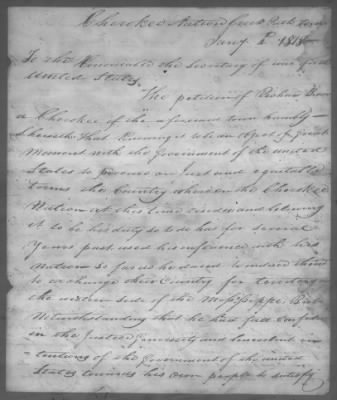 Cherokee Nation Creek Path town
Jany 1st 1818
To the Honourable the Secretary of war of the
United States,
The petition of
a Cherokee of the aforesaid town humbly
Sheweth. That Knowing it to be an object of great
Moment with the Government of the united
States to procure on Just and equitable
terms the Country whereon the Cherokee
Nation at this time resides and believing
it to be his duty so to do has for several
Years past used his influence with his
Nation so far as he dared to induce them
to exchange their Country for territory on
the western side of the Mississippi River
Notwithstanding that he has full confidence
in the Justice Generosity and benevolent in-
-tentions of the Government of the united
States towards his own people to satisfy